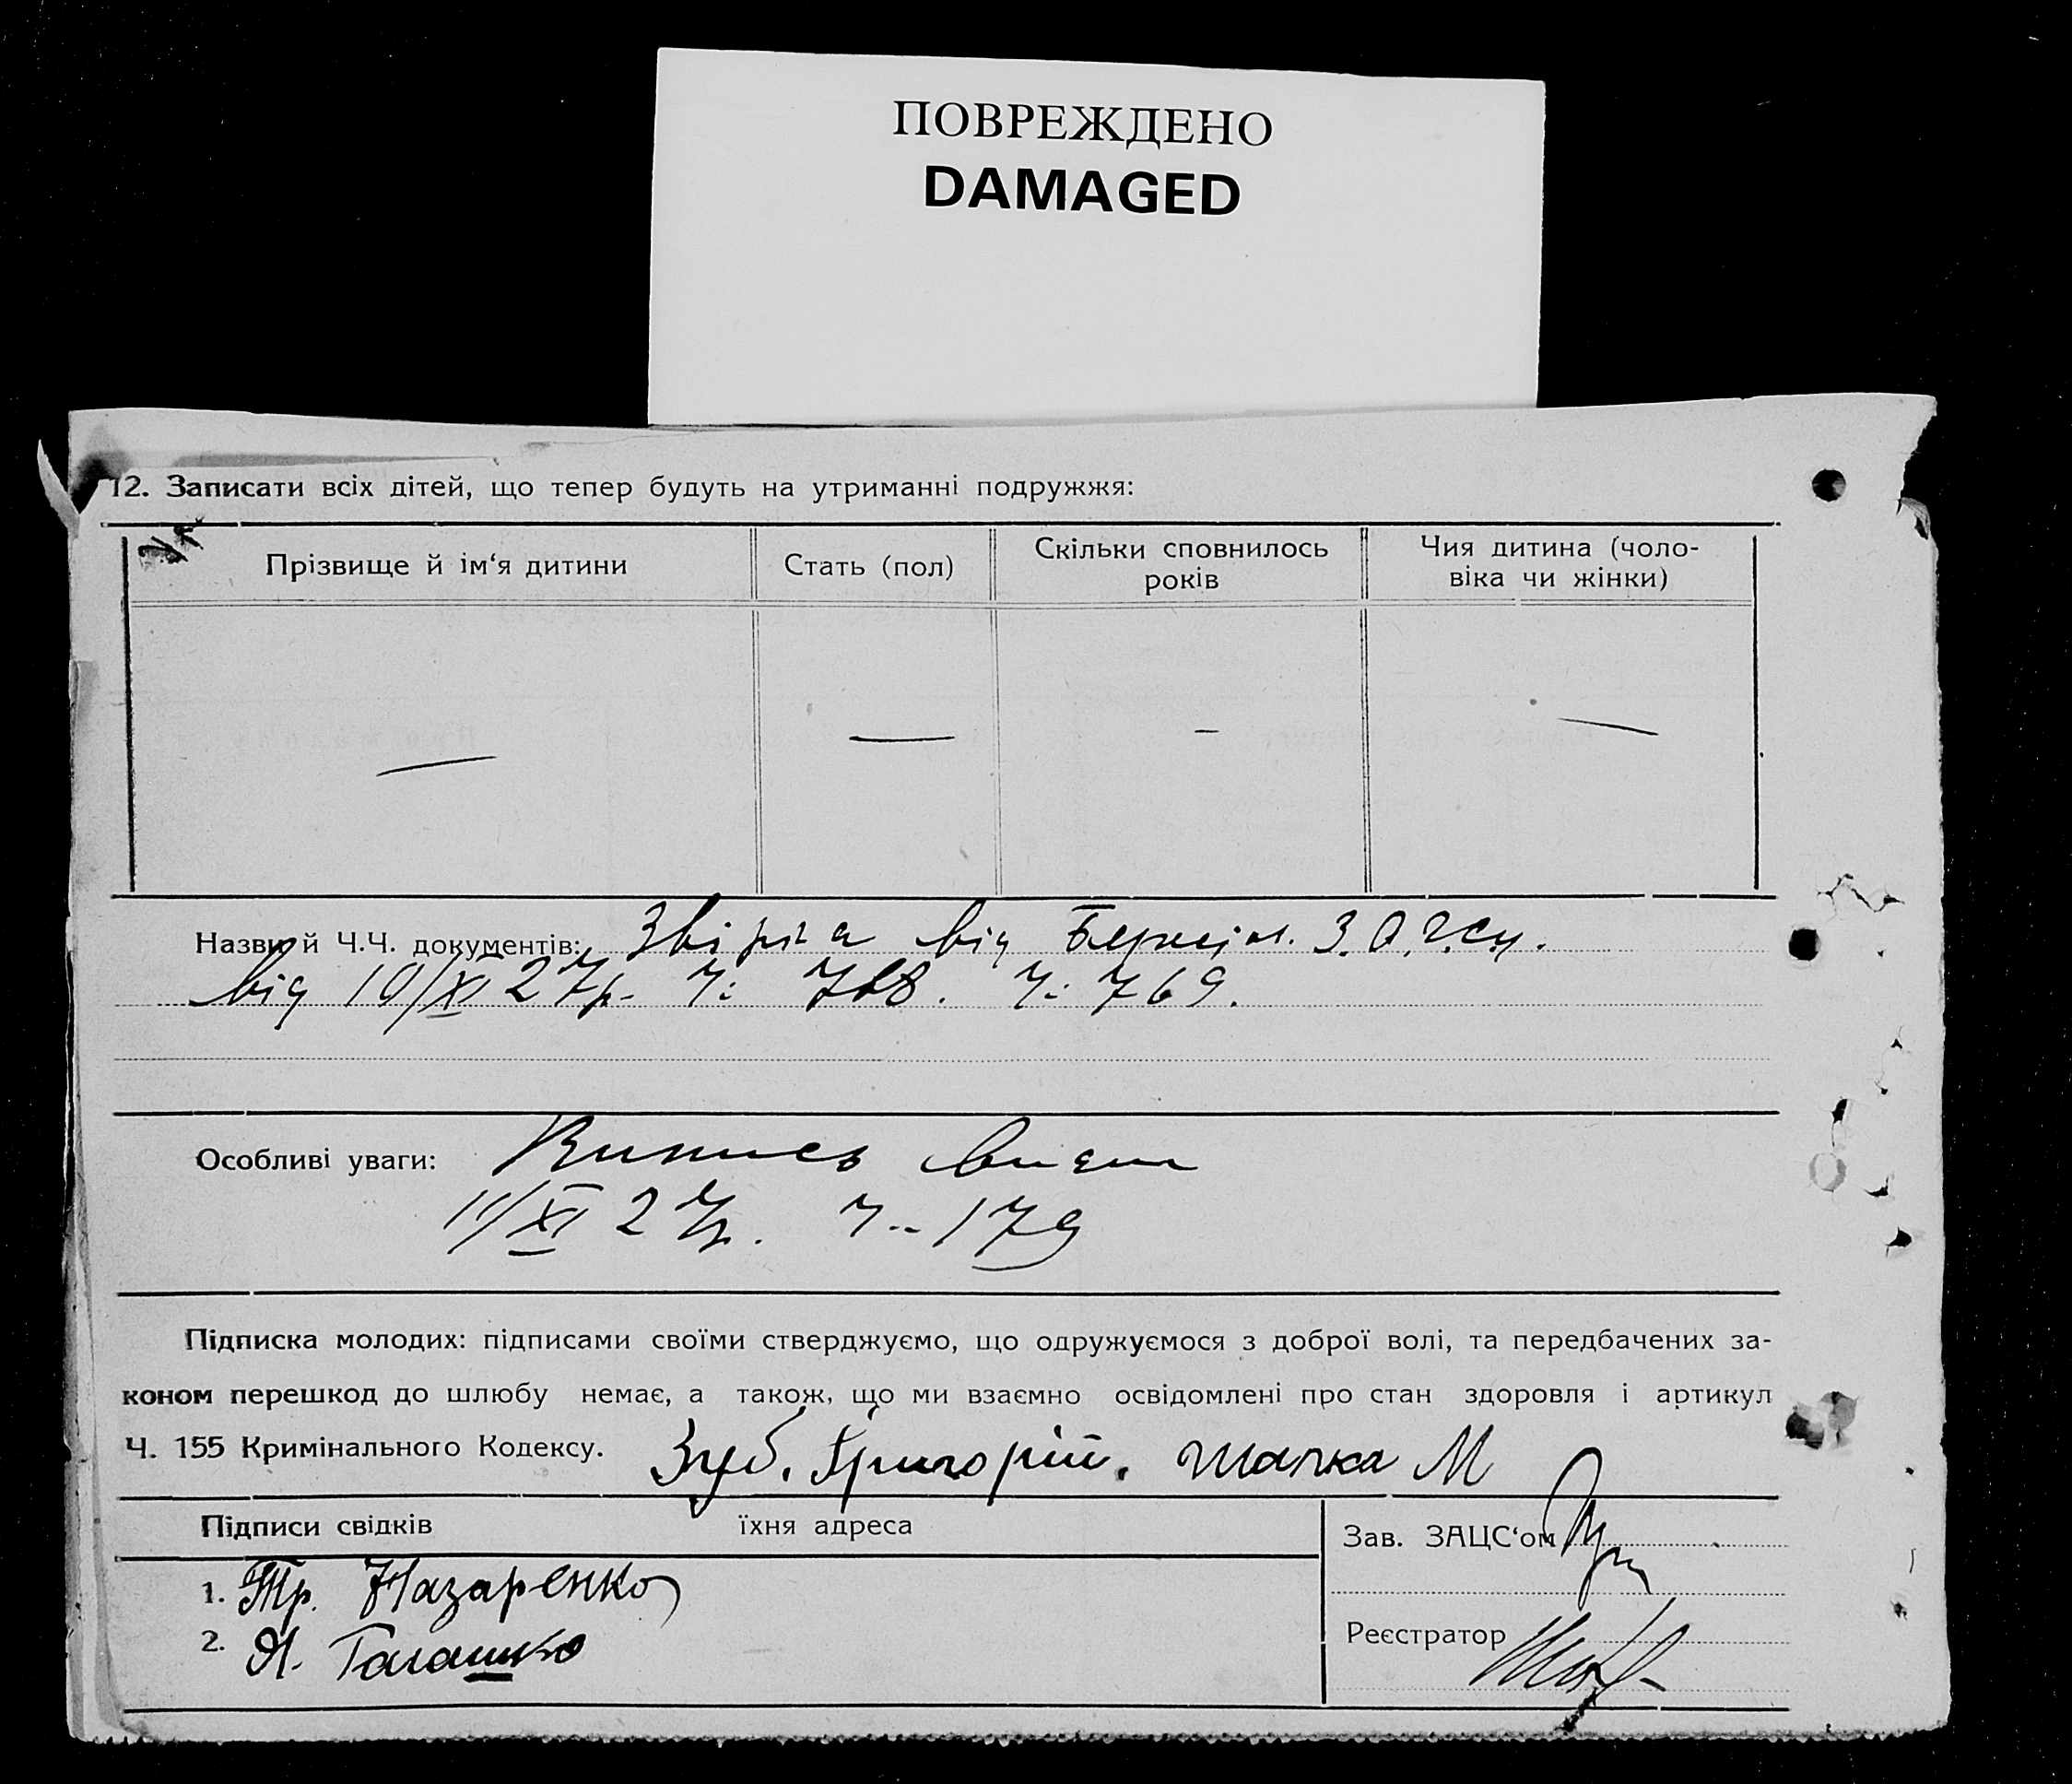 ПОВРЕЖДЕНО
DAMAGED
12. Записати всіх дітей, що тепер будуть на утриманні подружжя:
Прізвище й ім‘я дитини
Стать (пол)
Скільки сповнилось
років
Чия дитина (чоло-
віка чи жінки)
Назви й Ч.Ч. документів: від
від 10/XI 27р. Ч: Ч: 769.
Особливі уваги: Випись
XI 27р. Ч.. 179
Підписка молодих: підписами своїми стверджуємо, що одружуємося з доброї волі, та передбачених за-
коном перешкод до шлюбу немає, а також, що ми взаємно освідомлені про стан здоровля і артикул
Ч. 155 Кримінального Кодексу. Зуб. Григорій. М
Підписи свідків
їхня адреса
Зав. ЗАЦС‘ом
1. Тр. Назаренко
2. Я. Галашко
Реєстратор